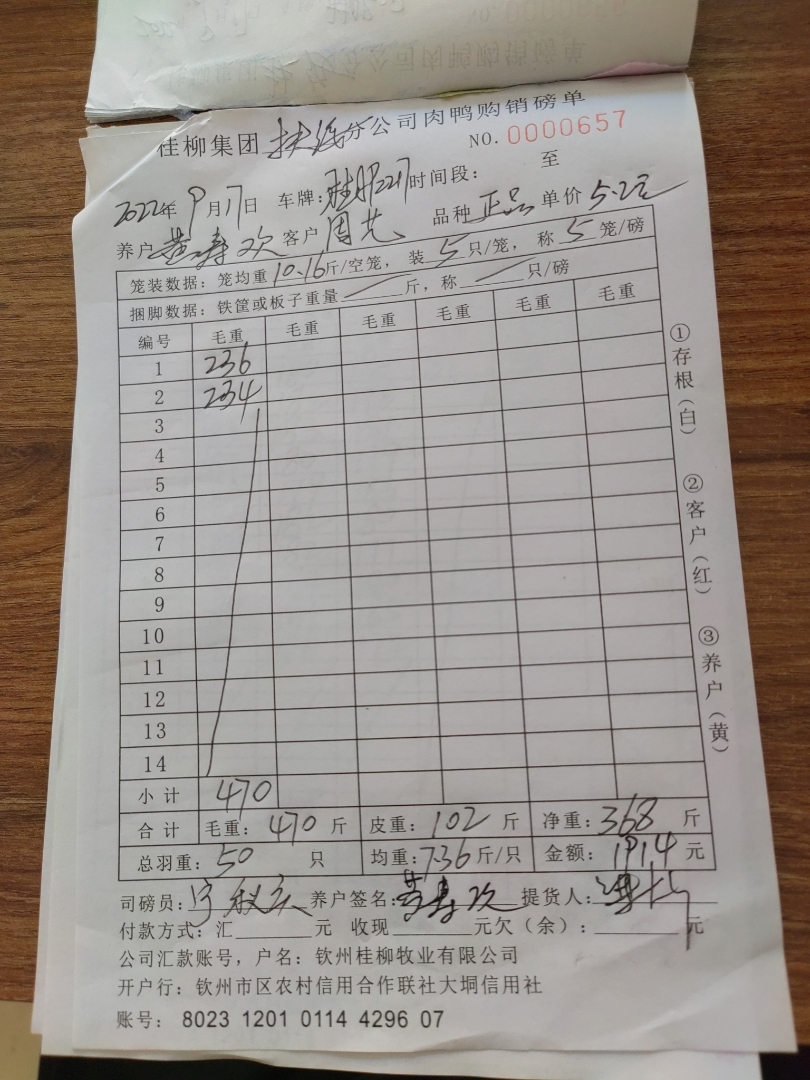 桂柳集团扶绥分公司肉鸭购销磅单
NO.0000657
2022年9月17日 车牌:桂 2217 时间段: 至
养户 黄寿欢 客户 周艺 品种 正品 单价 5.2元
笼装数据:笼均重10.16斤/空笼,装5只/笼,称5笼/磅
捆脚数据:铁筐或板子重量 斤,称 只/磅
编号 毛重 毛重 毛重 毛重 毛重 毛重
1 236
2 234
3
4
5
6
7
8
9
10
11
12
13
14
小计 470
合计 毛重:470斤 皮重:102斤 净重:368斤
总羽重:50只 均重:7.36斤/只 金额:1914元
司磅员: 养户签名:黄寿欢 提货人:
付款方式:汇 元 收现 元欠(余): 元
公司汇款账号,户名:钦州桂柳牧业有限公司
开户行:钦州市区农村信用合作联社大垌信用社
账号: 8023 1201 0114 4296 07
①存根(白)
②客户(红)
③养户(黄)